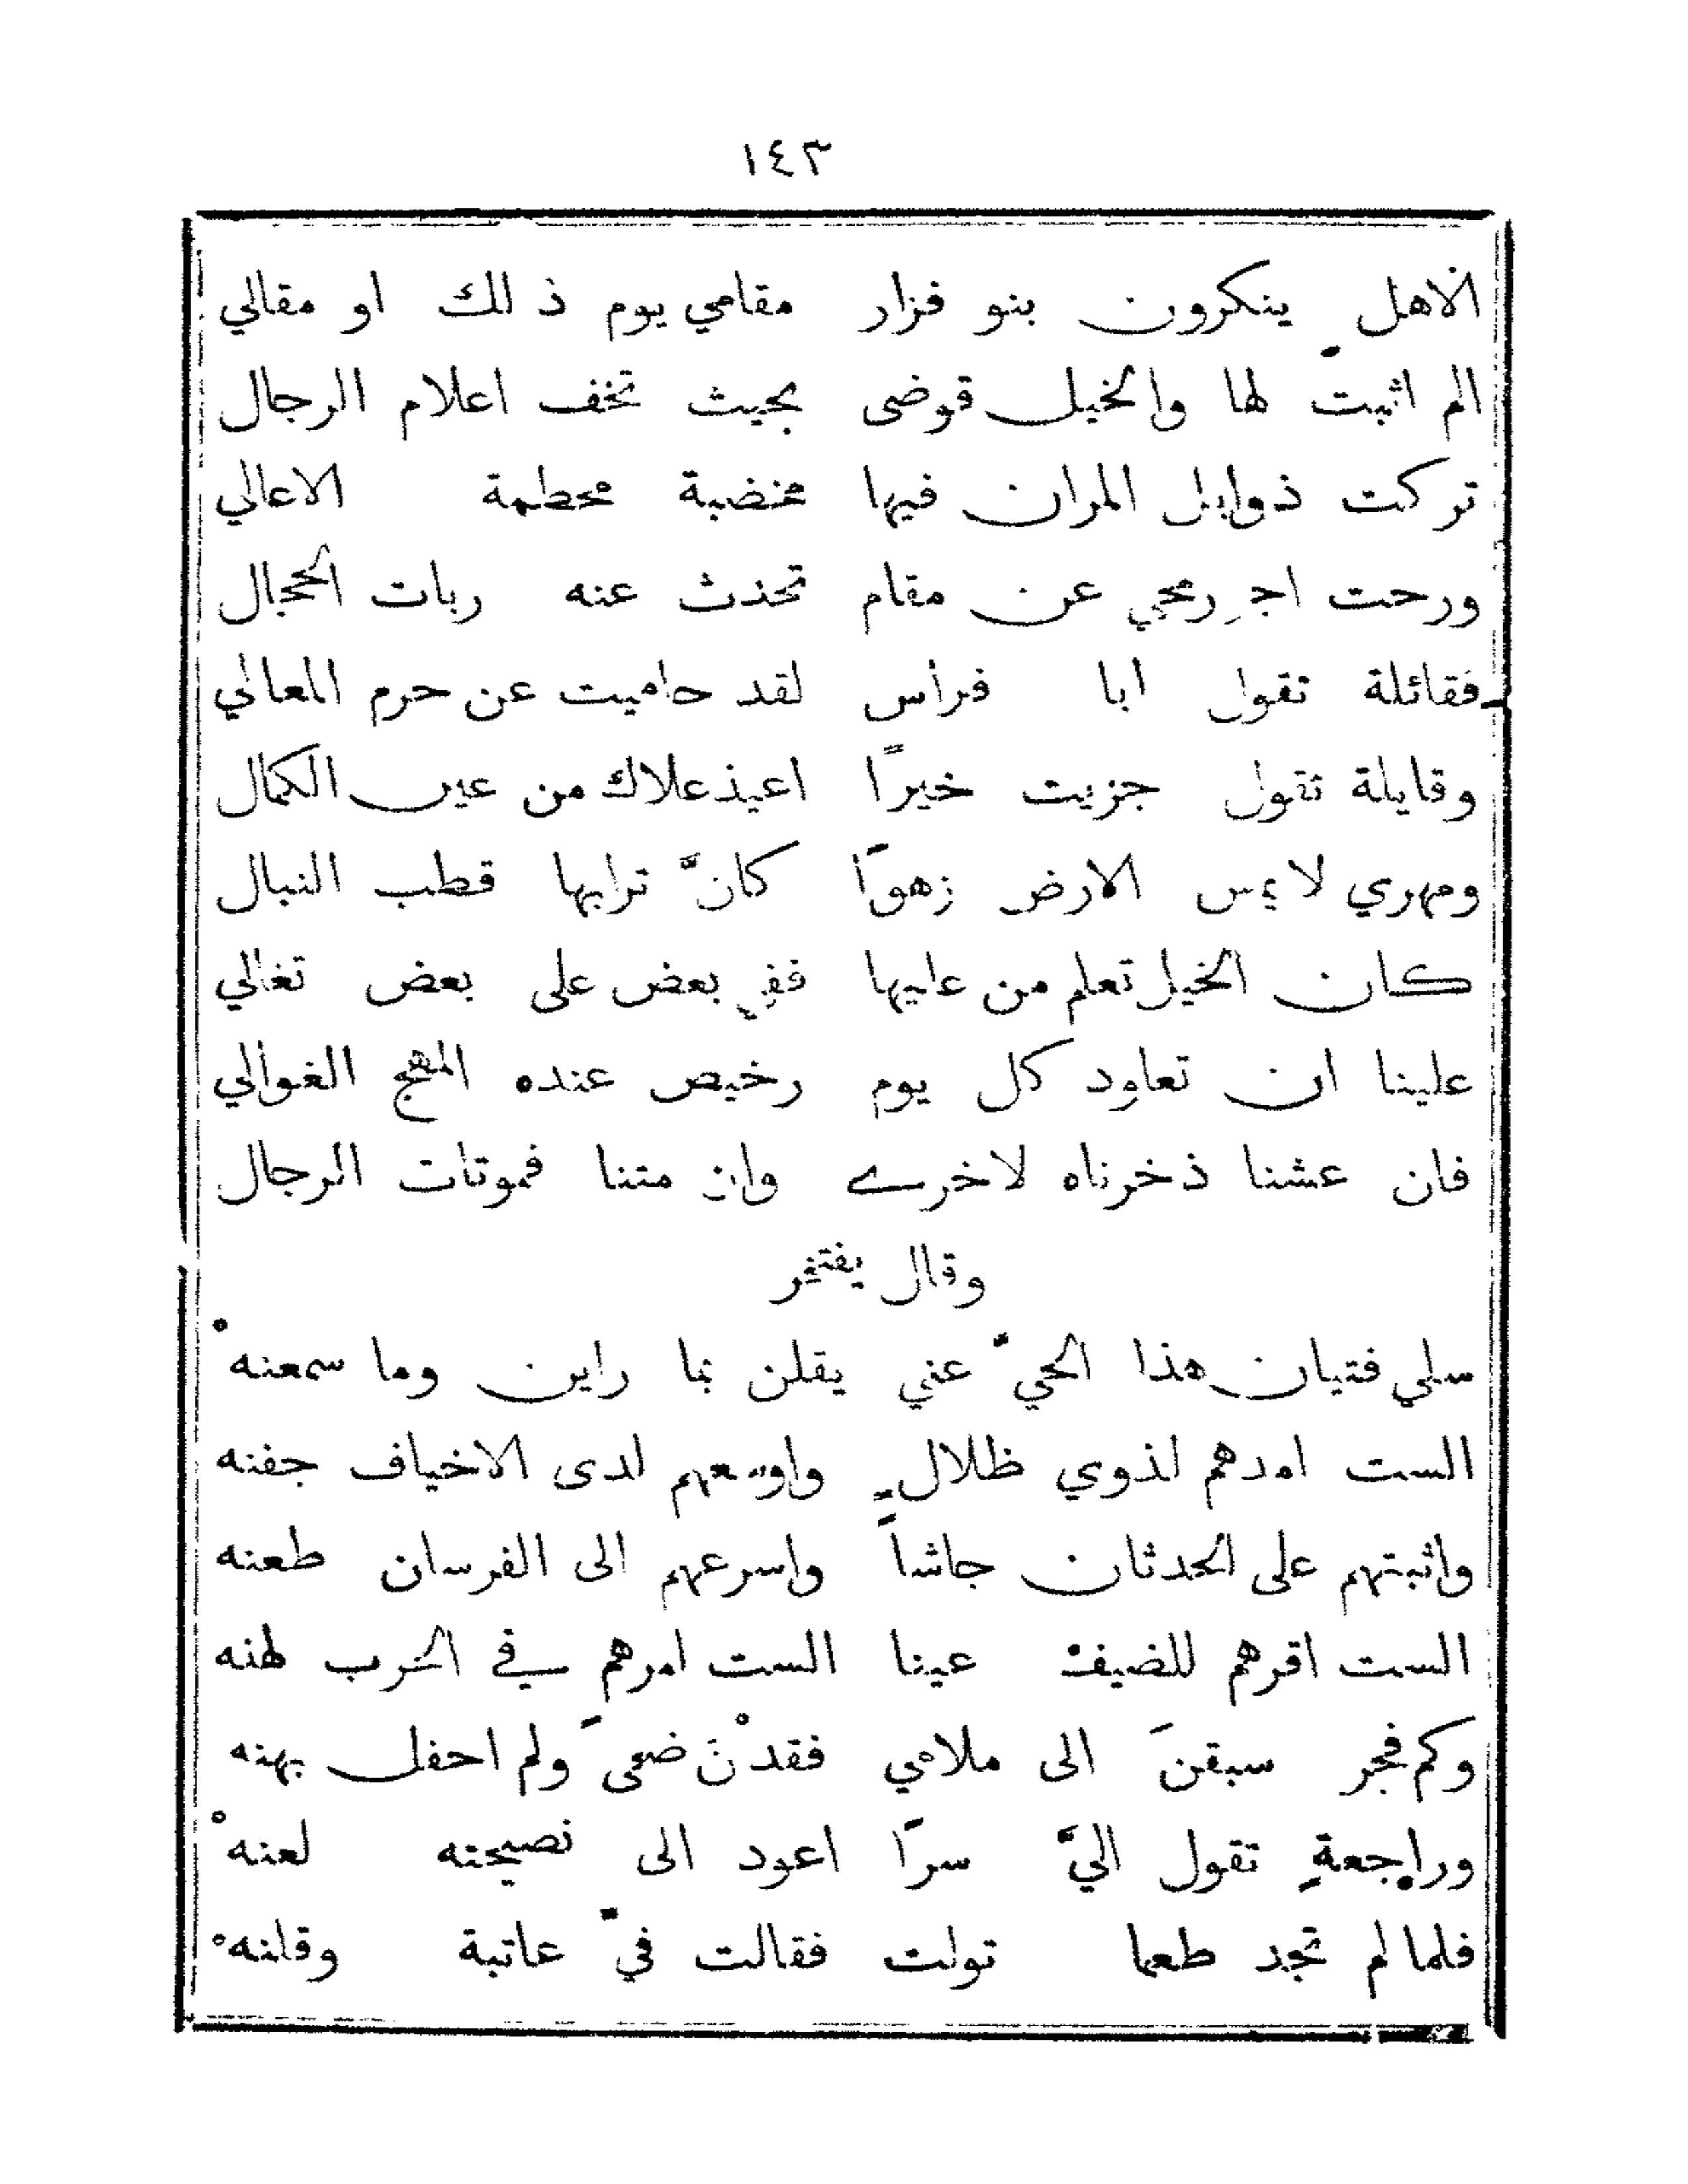 ١٤٣
الاهل ينكرون بنو فزار مقامي يوم ذلك او مقالي
الم اثبتّ لها والخيل قوضى بحيث تخف اعلام الرجال
تركت ذوابل المران فيها مخضبة محطمة الاعالي
ورحت اجر رمحي عن مقام تحذث عنه ربات الحجال
فقائلة تقول ابا فراس لقد حاميت عن حرم المعالي
وقايلة تقول جزيت خيرًا اعيذ علاك من عين الكمال
ومهري لا يمس الارض زهوًا كانَّ ترابها قطب النبال
كان الخيل تعلم من عليها ففي بعض على بعض تغالي
علينا ان تعاود كل يوم رخيص عنده المهج الغوالي
فان عشنا ذخرناه لاخرى وان متنا فموتات الرجال
وقال يفتخر
سلي فتيان هذا الحيّ عني يقلن بما راين وما سمعنهْ
الست امدهم لذوي ظلالٍ واوسعهم لدى الاخياف جفنه
واثبتهم على الحدثان جاشاً واسرعهم الى الفرسان طعنه
الست اقرهم للضيف عينا الست امرهم في الحرب لهنه
وكم فجر سبقنَ الى ملامي فقدْنَ ضحىً ولم احفل بهنه
وراجعةٍ تقول اليَّ سرًا اعود الى نصيحته لعنهْ
فلما لم تجد طعما تولت فقالت فيّ عاتبة وقلنهْ